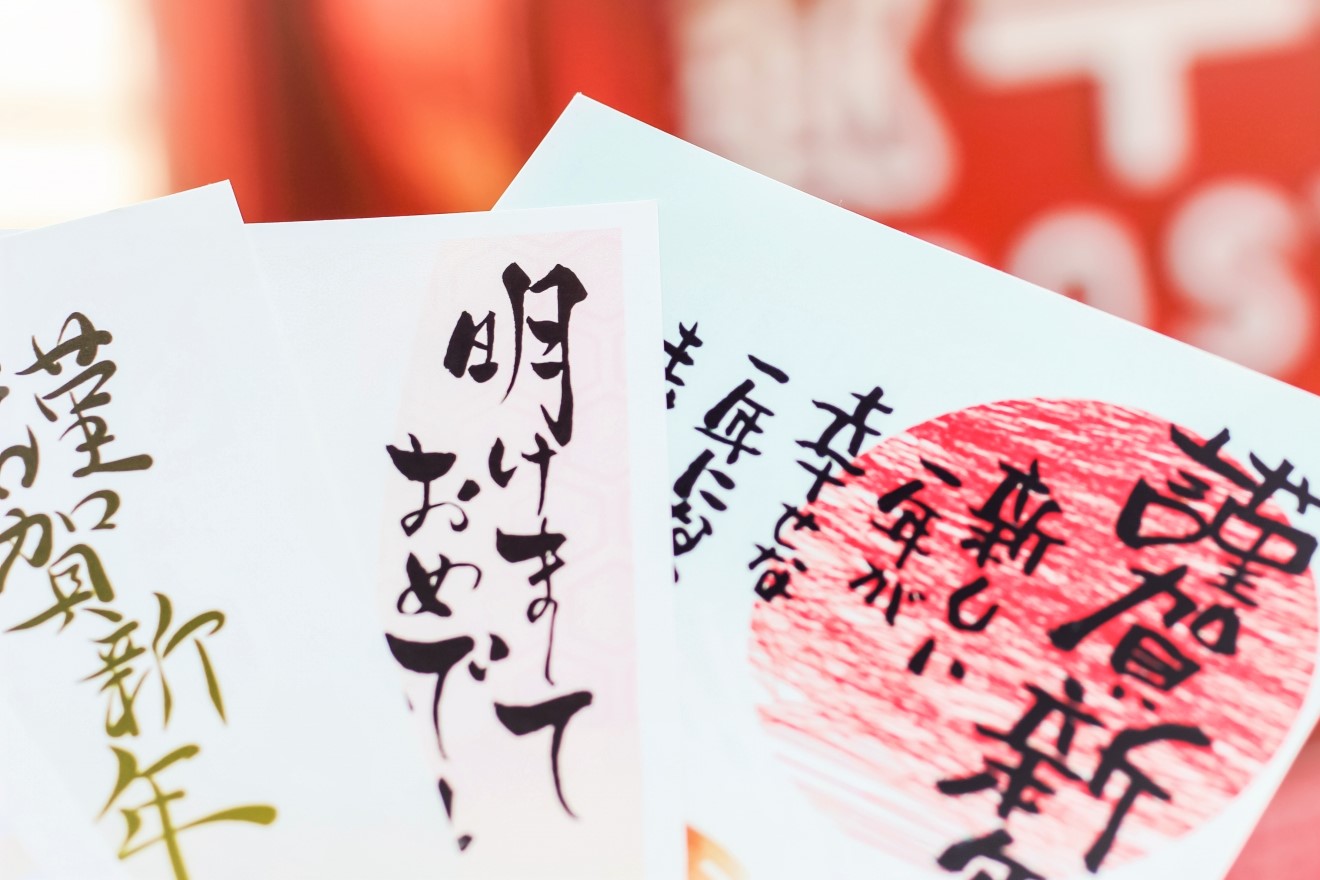 謹賀
新年
明けまして
おめで!
謹賀新年
新しい
一年が
幸せな
一年にな